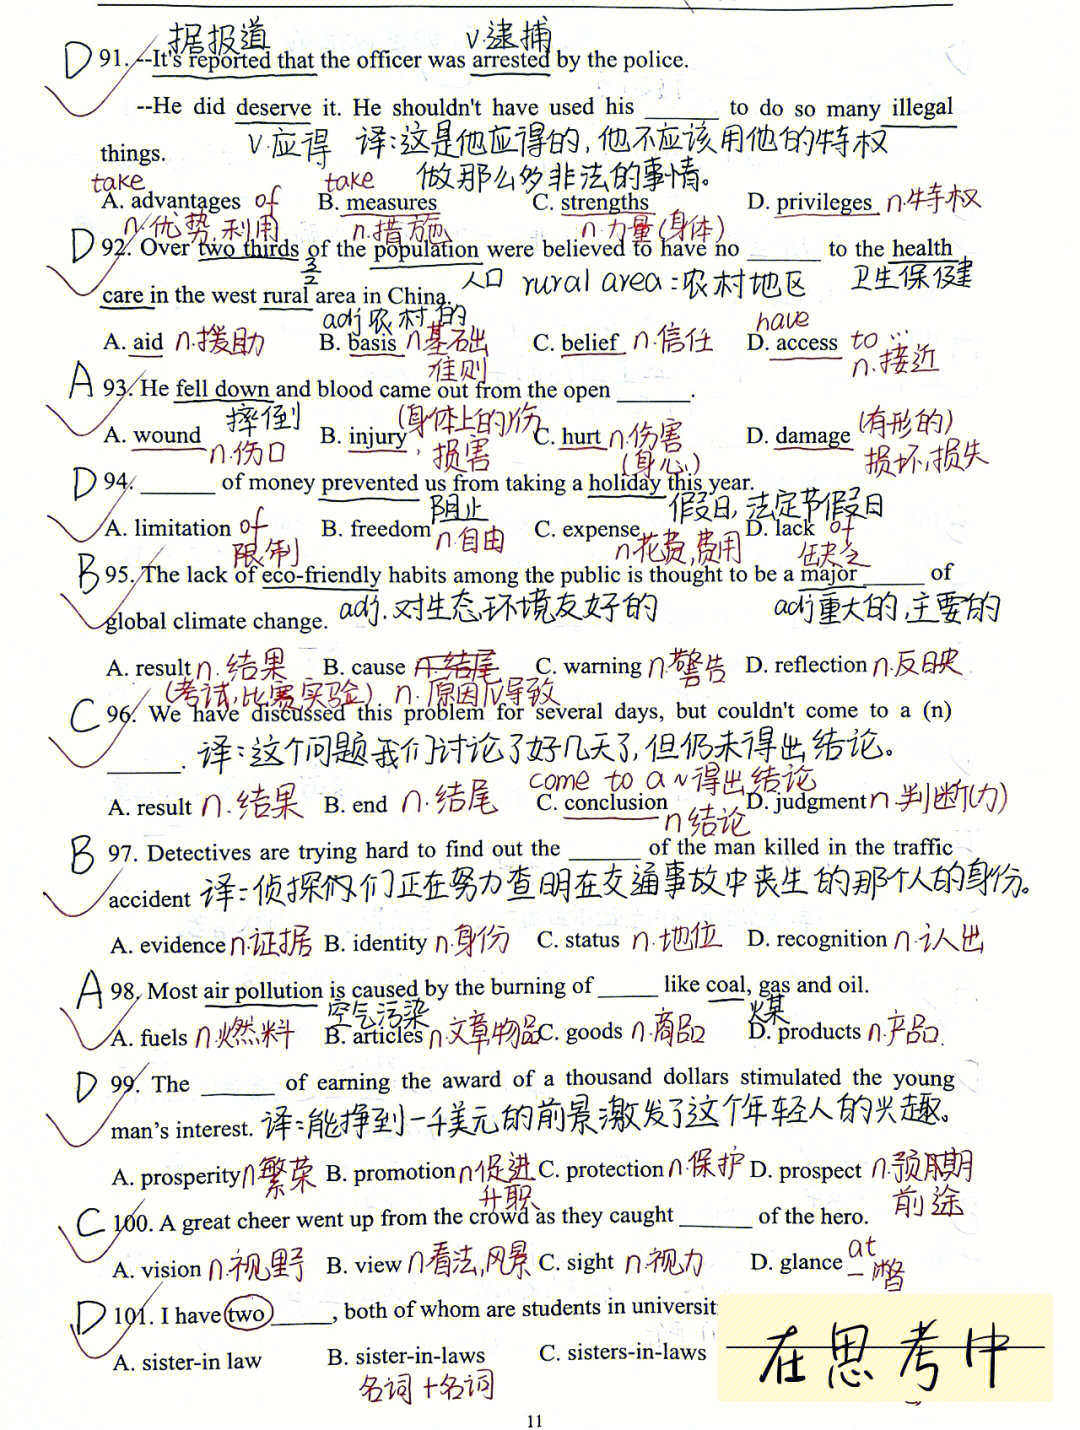 据报道 v.逮捕
D 91. --It's reported that the officer was arrested by the police.
--He did deserve it. He shouldn't have used his ______ to do so many illegal
v.应得 译:这是他应得的,他不应该用他的特权
things.
做那么多非法的事情。
take take
A. advantages of B. measures C. strengths D. privileges n.特权
n.优势,利用 n.措施 n.力量(身体)
D 92. Over two thirds of the population were believed to have no ______ to the health
人口 rural area:农村地区 卫生保健
care in the west rural area in China.
adj农村的
have
A. aid n.援助 B. basis n基础 C. belief n.信任 D. access to...
准则 n.接近
A 93. He fell down and blood came out from the open ______.
摔倒 (身体上的)伤 (有形的)
A. wound B. injury C. hurt n.伤害 D. damage
n.伤口 损害 (身心) 损坏,损失
D 94. ______ of money prevented us from taking a holiday this year.
阻止 假日,法定节假日
A. limitation of B. freedom C. expense D. lack of
限制 n.自由 n.花费,费用 缺乏
B 95. The lack of eco-friendly habits among the public is thought to be a major ______ of
adj.对生态环境友好的 adj重大的,主要的
global climate change.
A. result n.结果 B. cause n.结尾 C. warning n.警告 D. reflection n.反映
(考试,比赛,实验) n.原因/v导致
C 96. We have discussed this problem for several days, but couldn't come to a (n)
______. 译:这个问题我们讨论了好几天了,但仍未得出结论。
come to a ~得出结论
A. result n.结果 B. end n.结尾 C. conclusion D. judgment n.判断(力)
n结论
B 97. Detectives are trying hard to find out the ______ of the man killed in the traffic
accident 译:侦探们正在努力查明在交通事故中丧生的那个人的身份。
A. evidence n.证据 B. identity n.身份 C. status n.地位 D. recognition n.认出
A 98. Most air pollution is caused by the burning of ______ like coal, gas and oil.
空气污染 煤
A. fuels n.燃料 B. articles n.文章物品 C. goods n.商品 D. products n.产品
D 99. The ______ of earning the award of a thousand dollars stimulated the young
man's interest. 译:能挣到一千美元的前景激发了这个年轻人的兴趣。
A. prosperity n繁荣 B. promotion n促进 C. protection n.保护 D. prospect n.预期
升职 前途
C 100. A great cheer went up from the crowd as they caught ______ of the hero.
A. vision n.视野 B. view n看法,风景 C. sight n.视力 D. glance at
一瞥
D 101. I have two ______, both of whom are students in universit
A. sister-in law B. sister-in-laws C. sisters-in-laws
名词+名词
在思考中
11